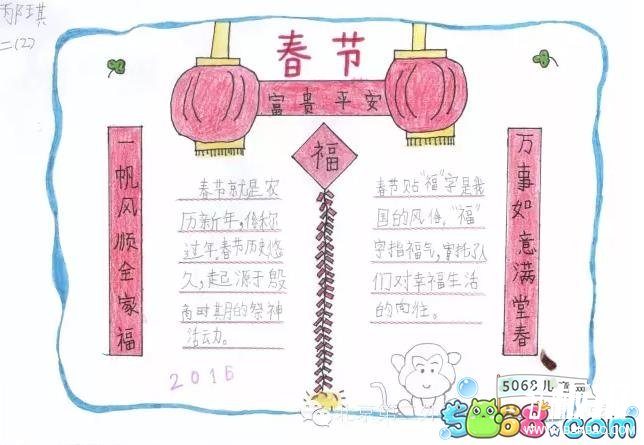 邴琪
二(2)
春节
富贵平安
一帆风顺全家福
福
万事如意满堂春
春节就是农
历新年,俗称
过年。春节历史悠
久,起源于殷
商时期的祭神
活动。
春节贴“福”字是我
国的风俗。“福”
字指福气,寄托了人
们对幸福生活
的向往。
2016
5068儿童网
5068.com